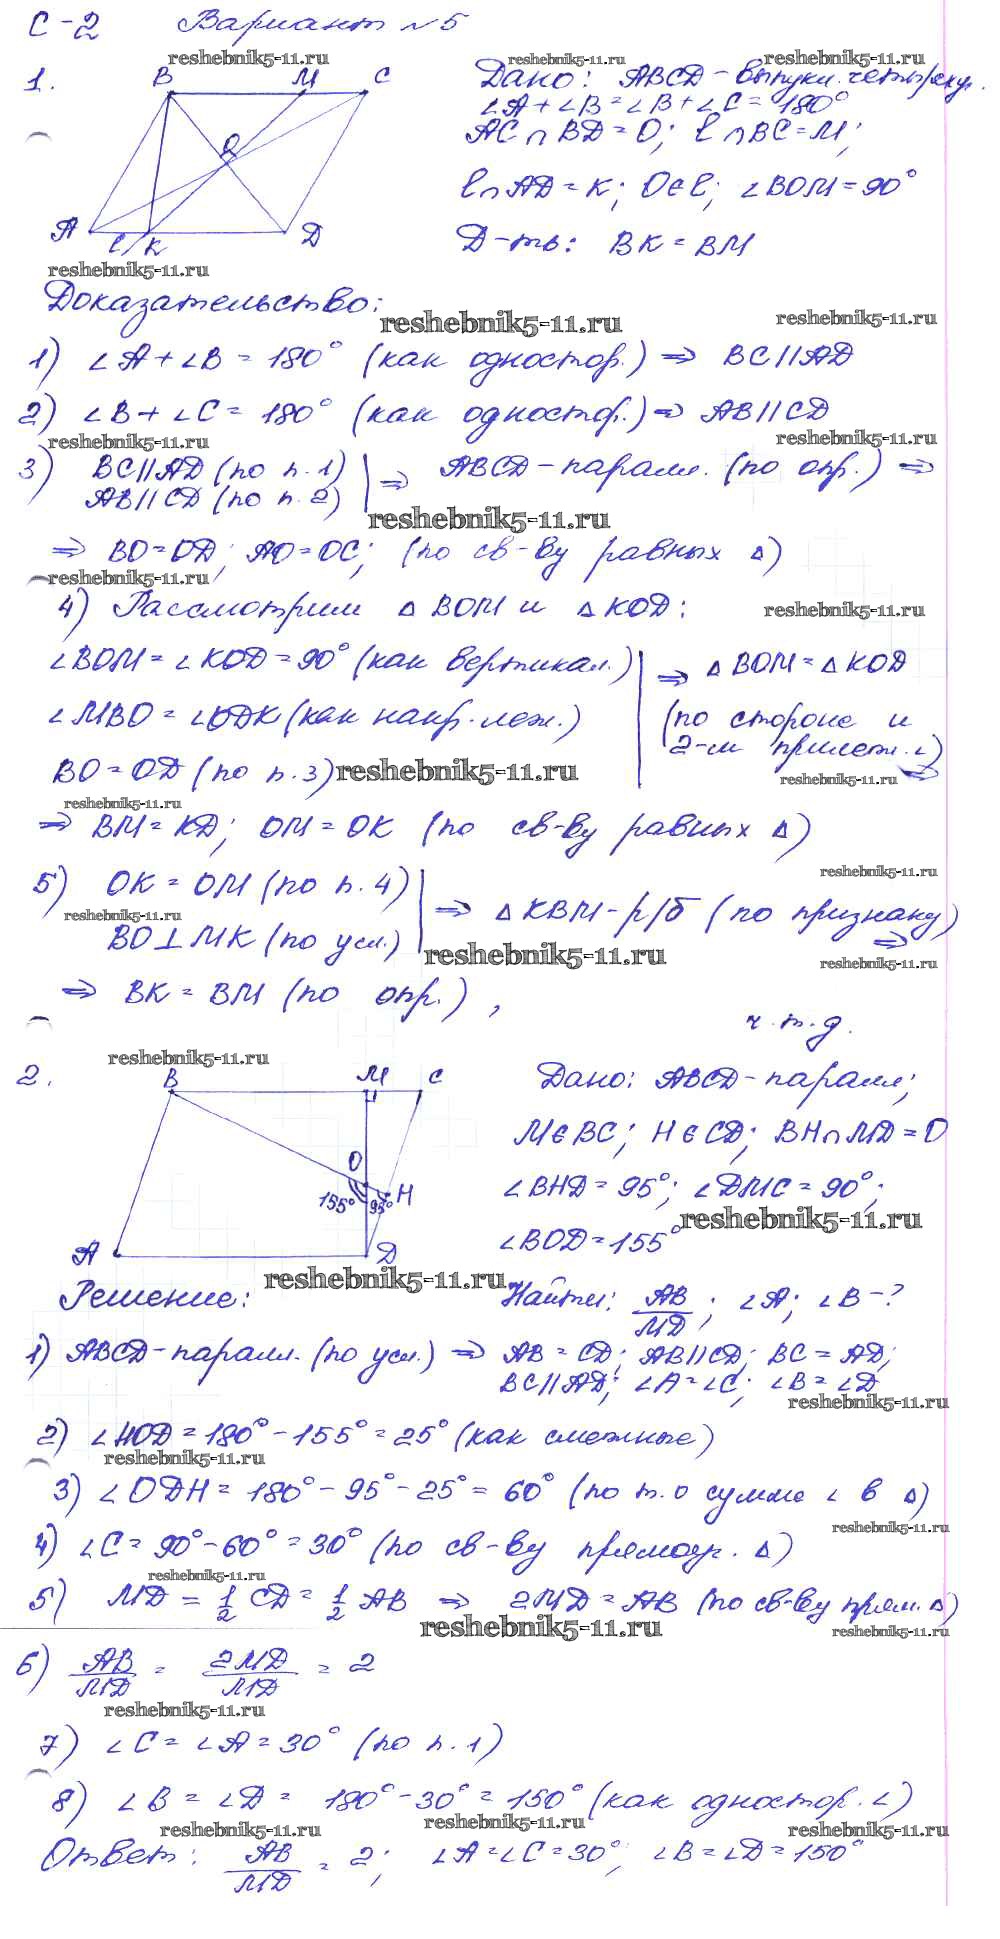 С-2 Вариант №5
reshebnik5-11.ru reshebnik5-11.ru reshebnik5-11.ru
1.
B M C
O
A ℓ K D
Дано: ABCD – выпукл. четырёхуг.
∠A + ∠B = ∠B + ∠C = 180°
AC ∩ BD = O; ℓ ∩ BC = M;
ℓ ∩ AD = K; O ∈ ℓ; ∠BOM = 90°
Д-ть: BK = BM
reshebnik5-11.ru
Доказательство:
reshebnik5-11.ru reshebnik5-11.ru
1) ∠A + ∠B = 180° (как одностор.) ⇒ BC || AD
2) ∠B + ∠C = 180° (как одностор.) ⇒ AB || CD
reshebnik5-11.ru reshebnik5-11.ru
3) BC || AD (по п. 1)
AB || CD (по п. 2) ⇒ ABCD – паралл. (по опр.) ⇒
reshebnik5-11.ru
⇒ BO = OD; AO = OC; (по св-ву равных Δ)
reshebnik5-11.ru
4) Рассмотрим Δ BOM и Δ KOD:
reshebnik5-11.ru
∠BOM = ∠KOD = 90° (как вертикал.) ⇒ Δ BOM = Δ KOD
∠MBO = ∠ODK (как накр. леж.) (по стороне и
BO = OD (по п. 3) 2-м прилеж. ∠) ⇒
reshebnik5-11.ru reshebnik5-11.ru
reshebnik5-11.ru
⇒ BM = KD; OM = OK (по св-ву равных Δ)
reshebnik5-11.ru
5) OK = OM (по п. 4)
reshebnik5-11.ru
BO ⊥ MK (по усл.) ⇒ Δ KBM – р/б (по признаку) ⇒
reshebnik5-11.ru reshebnik5-11.ru
⇒ BK = BM (по опр.),
ч.т.д.
reshebnik5-11.ru
2.
B M C
O
155° 95° H
A D
Дано: ABCD – паралл;
M ∈ BC; H ∈ CD; BH ∩ MD = O
∠BHD = 95°; ∠DMC = 90°;
reshebnik5-11.ru
∠BOD = 155°
reshebnik5-11.ru
Решение:
Найти: AB/MD; ∠A; ∠B – ?
1) ABCD – паралл. (по усл.) ⇒ AB = CD; AB || CD; BC = AD;
BC || AD; ∠A = ∠C; ∠B = ∠D
reshebnik5-11.ru
2) ∠HOD = 180° – 155° = 25° (как смежные)
reshebnik5-11.ru
3) ∠ODH = 180° – 95° – 25° = 60° (по т. о сумме ∠ в Δ)
reshebnik5-11.ru
4) ∠C = 90° – 60° = 30° (по св-ву прямоуг. Δ)
reshebnik5-11.ru
5) MD = 1/2 CD = 1/2 AB ⇒ 2MD = AB (по св-ву прям. Δ)
reshebnik5-11.ru reshebnik5-11.ru
6) AB/MD = 2MD/MD = 2
reshebnik5-11.ru
7) ∠C = ∠A = 30° (по п. 1)
8) ∠B = ∠D = 180° – 30° = 150° (как одностор. ∠)
reshebnik5-11.ru reshebnik5-11.ru reshebnik5-11.ru
Ответ: AB/MD = 2; ∠A = ∠C = 30°; ∠B = ∠D = 150°